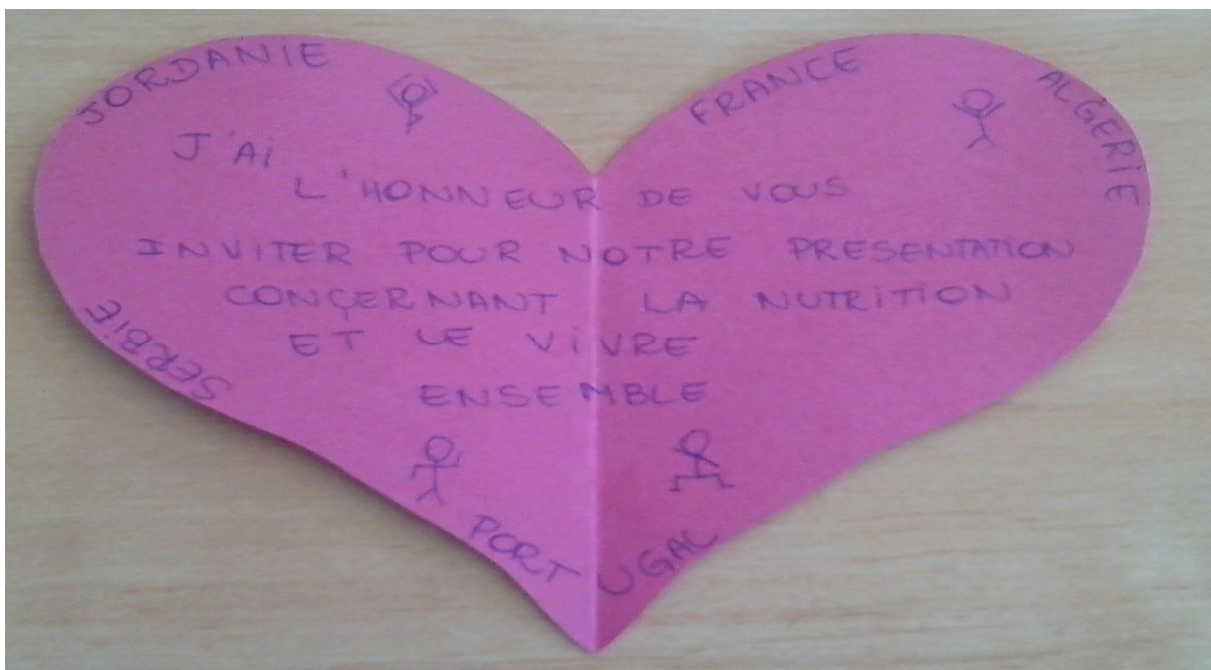 JORDANIE
FRANCE
ALGERIE
J'AI
L'HONNEUR DE VOUS
INVITER POUR NOTRE PRESENTATION
CONÇERNANT LA NUTRITION
ET LE VIVRE
ENSEMBLE
SERBIE
PORTUGAL